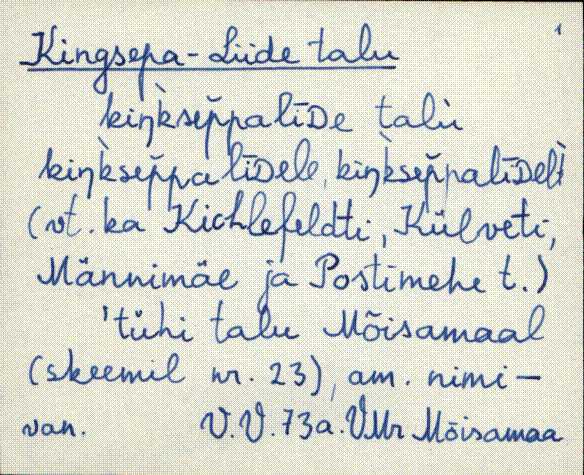 1
Kingsepa-Liide talu
kiŋ̀ksep̆palīDe talù
kiŋ̀ksep̆palīDele, kiŋ̀ksep̆palīDelt
(vt. ka Kichlefeldti, Külveti,
Männimäe ja Postimehe t.)
'tühi talu Mõisamaal
(skeemil nr. 23), am. nimi -
van. V.V. 73a. VMr Mõisamaa